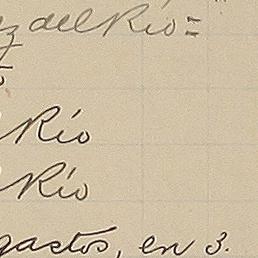 del Río=
Río
Río
gastos, en 3.